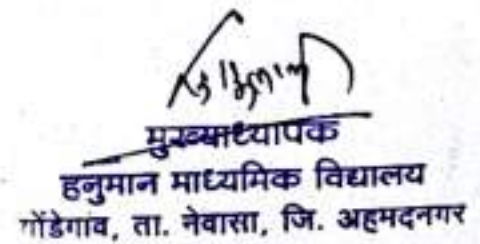 मुख्याध्यापक
हनुमान माध्यमिक विद्यालय
गोंडेगांव, ता. नेवासा, जि. अहमदनगर